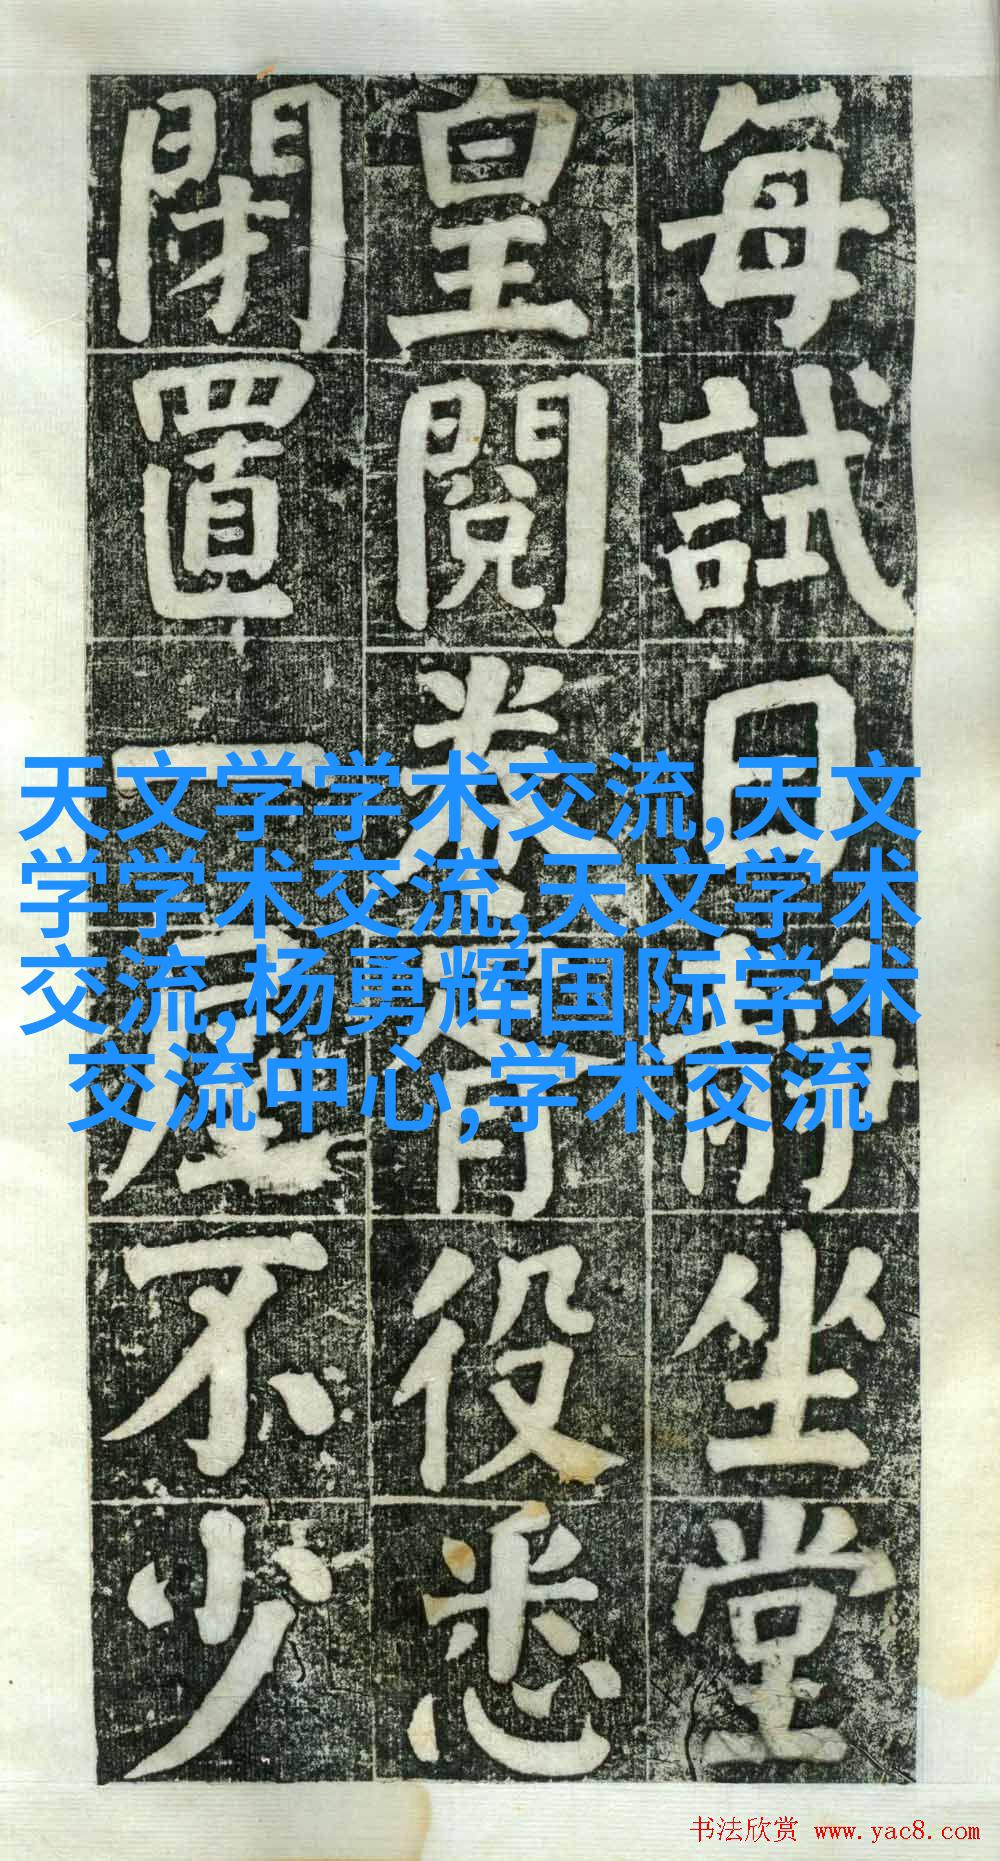 每試日靜坐堂
皇閱卷胥役悉
閉置一屋不少
天文学学术交流,天文
学学术交流,天文学术
交流,杨勇辉国际学术
交流中心,学术交流
书法欣赏 www.yac8.com